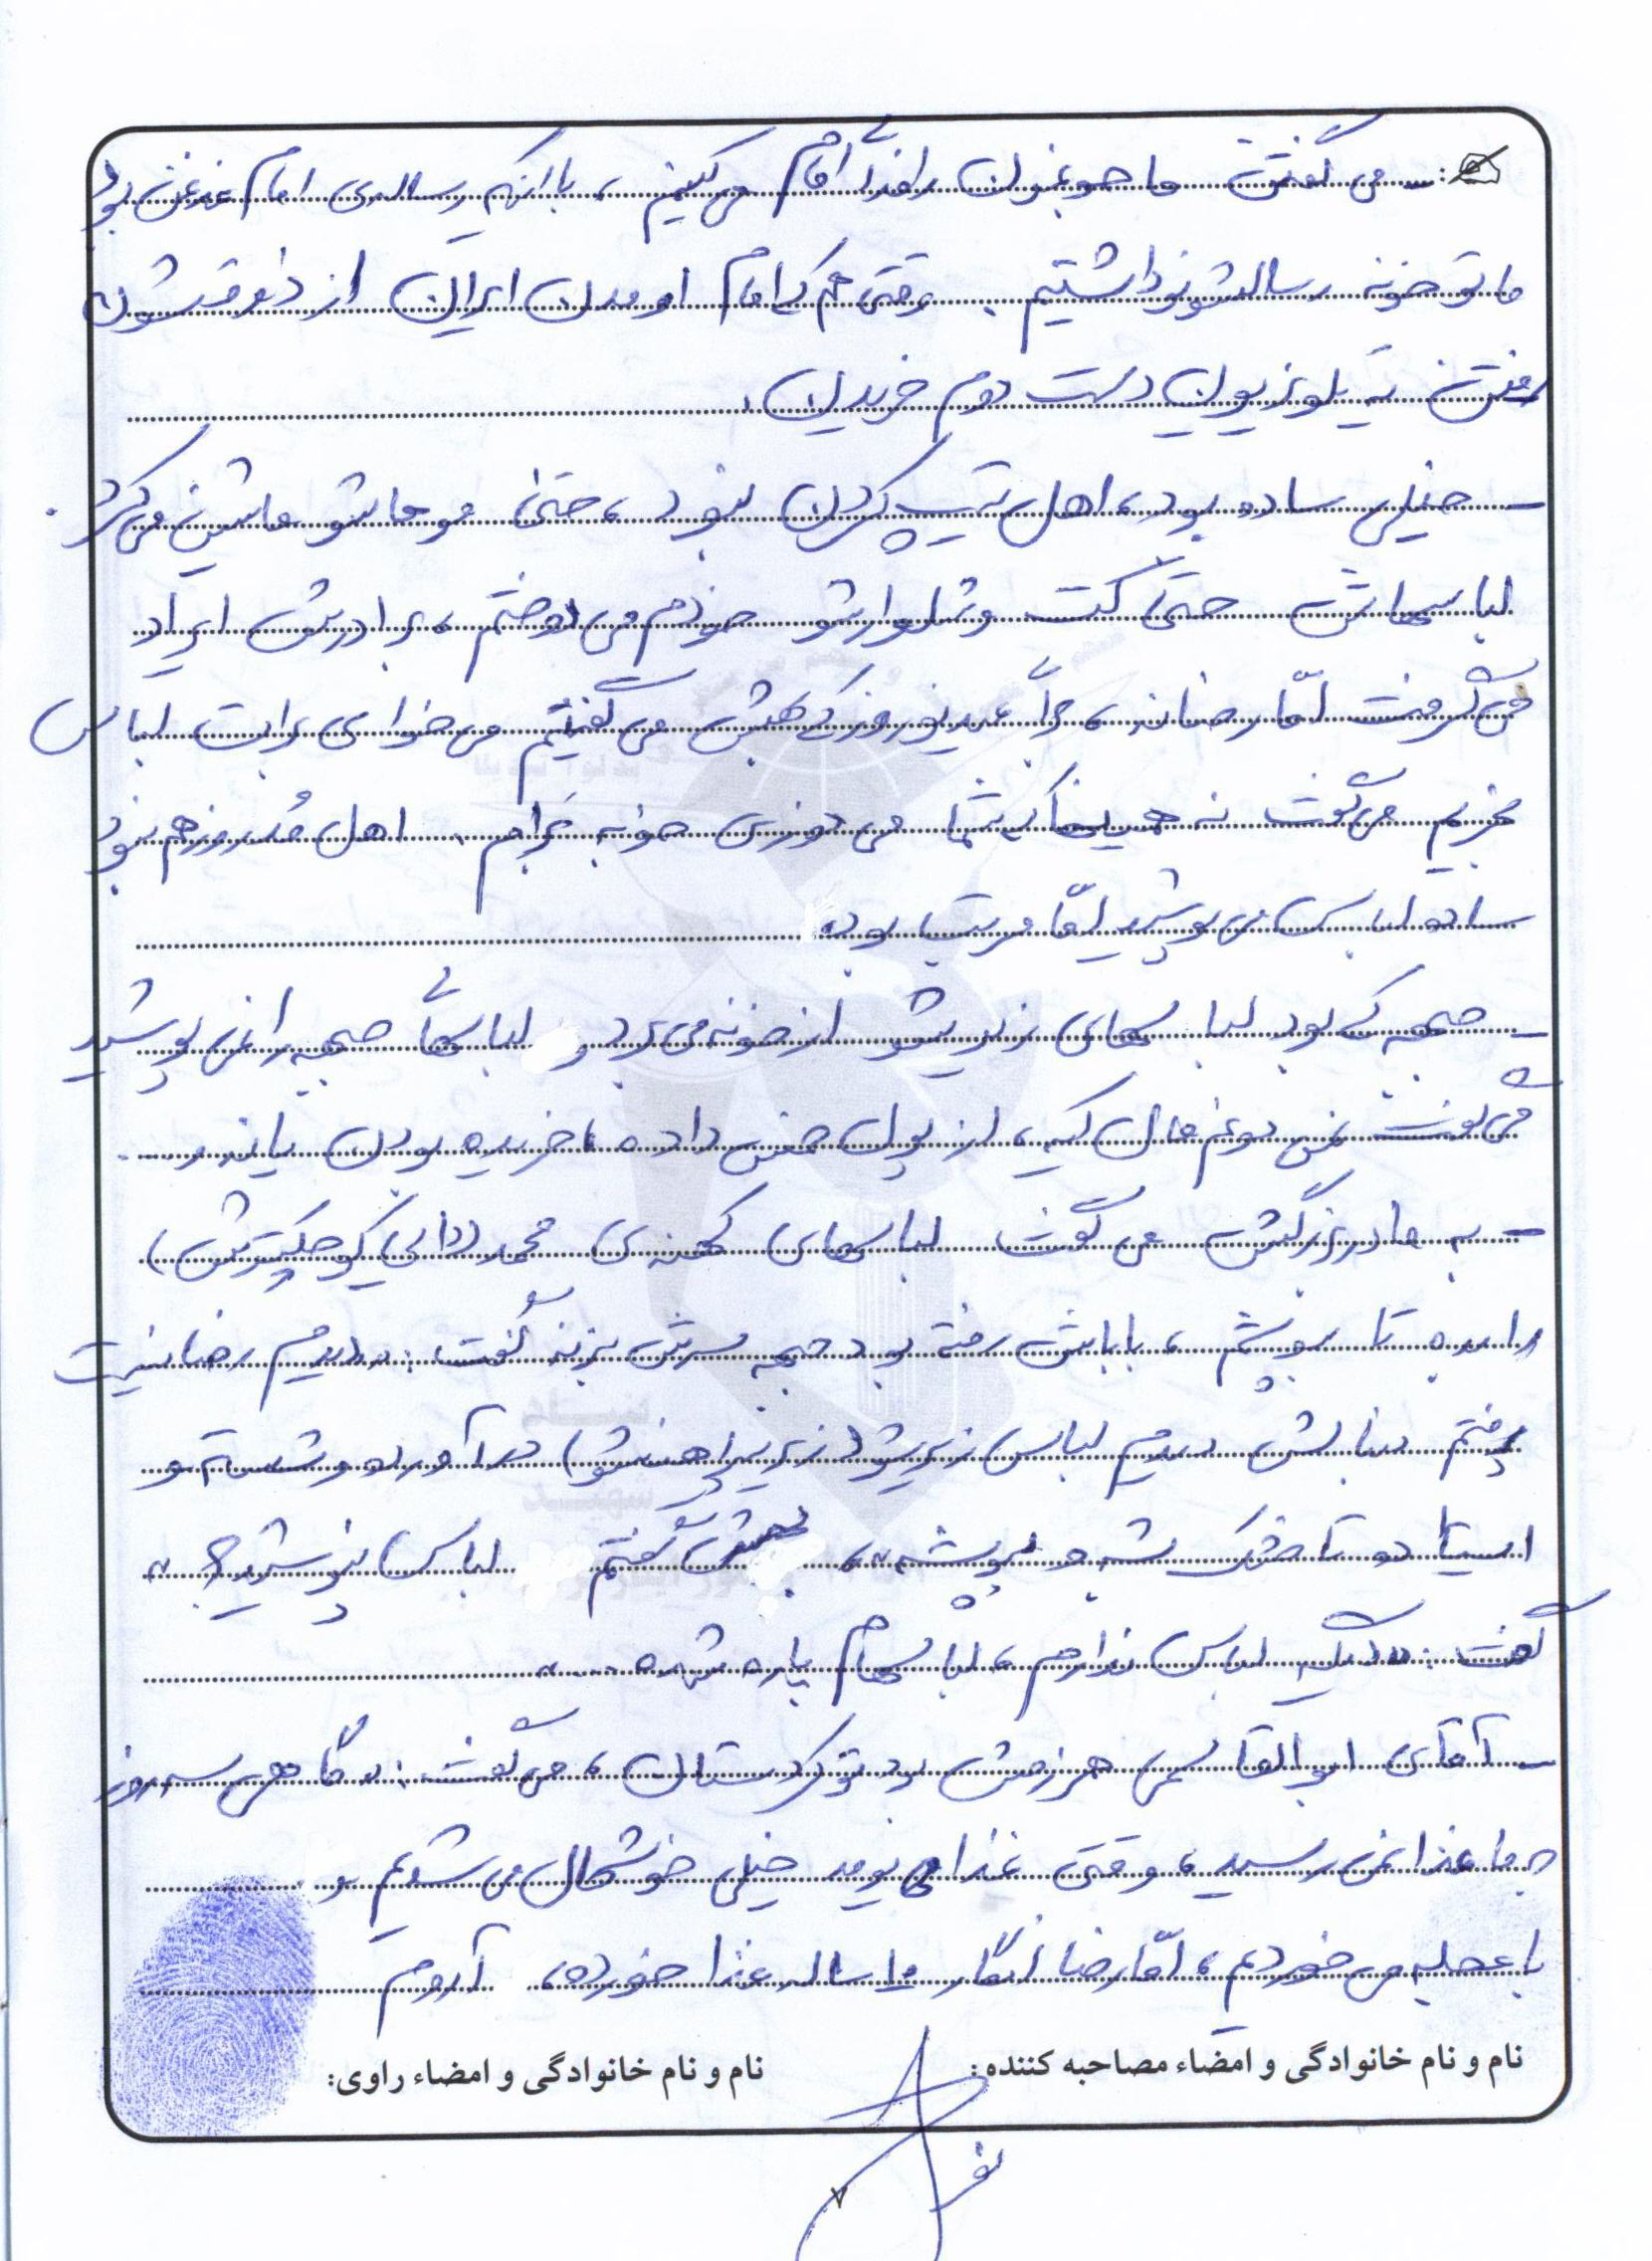 ـ می گفتن ما جونمون را فدا امام می کنیم، با اینکه رساله ی امام غدغن بود
ما تو خونه رسالشونو داشتیم. وقتی هم که امام اومدن ایران از ذوقشون
رفتن یه تلوزیون دست دوم خریدن.
ـ خیلی ساده بود، اهل تیپ کردن نبود، حتی موهاشو ماشین می کرد.
لباسهاش حتی کت و شلوارشو خودم می دوختم، برادرش ایراد
می گرفت امّا رضا نه، مثلاً عید نوروز که بهش می گفتیم می خوای برات لباس
بخریم می گفت نه همینها که شما می دوزی خوبه برام. اهل مُد روز هم نبود
ساده لباس می پوشید امّا مرتب بود.
ـ جبهه که بود لباسهای زیریشو از خونه می برد و لباسهای جبهه را نمی پوشید
می گفت نمی دونم مال کیه، از پول خمس داده، خریده بودن یا نه و...
ـ به مادربزرگش می گفت لباسهای کهنه ی محمد (دایی کوچکترش)
را بده تا بپوشم، باباش رفته بود جبهه سرش بزنه گفت: «دیدم رضا نیست
رفتم دنبالش دیدم لباس زیریشو (زیر پیراهنشو) درآورده و شسته و
ایستاده تا خشک بشه و بپوشه»، بهش گفتم لباس نپوشیدی؟ «
گفت: «دیگه لباس ندارم، لباسهام پاره شده ...»
ـ آقای ابوالقاسمی همرزمش بود تو کردستان، می گفت: «گاهی سه روز
به ما غذا نمی رسید، وقتی غذا می یومد خیلی خوشحال می شدیم و
با عجله می خوردیم، امّا رضا انگار ۱۰ ساله غذا خورده، آروم
نام و نام خانوادگی و امضاء مصاحبه کننده:
نام و نام خانوادگی و امضاء راوی:
۷